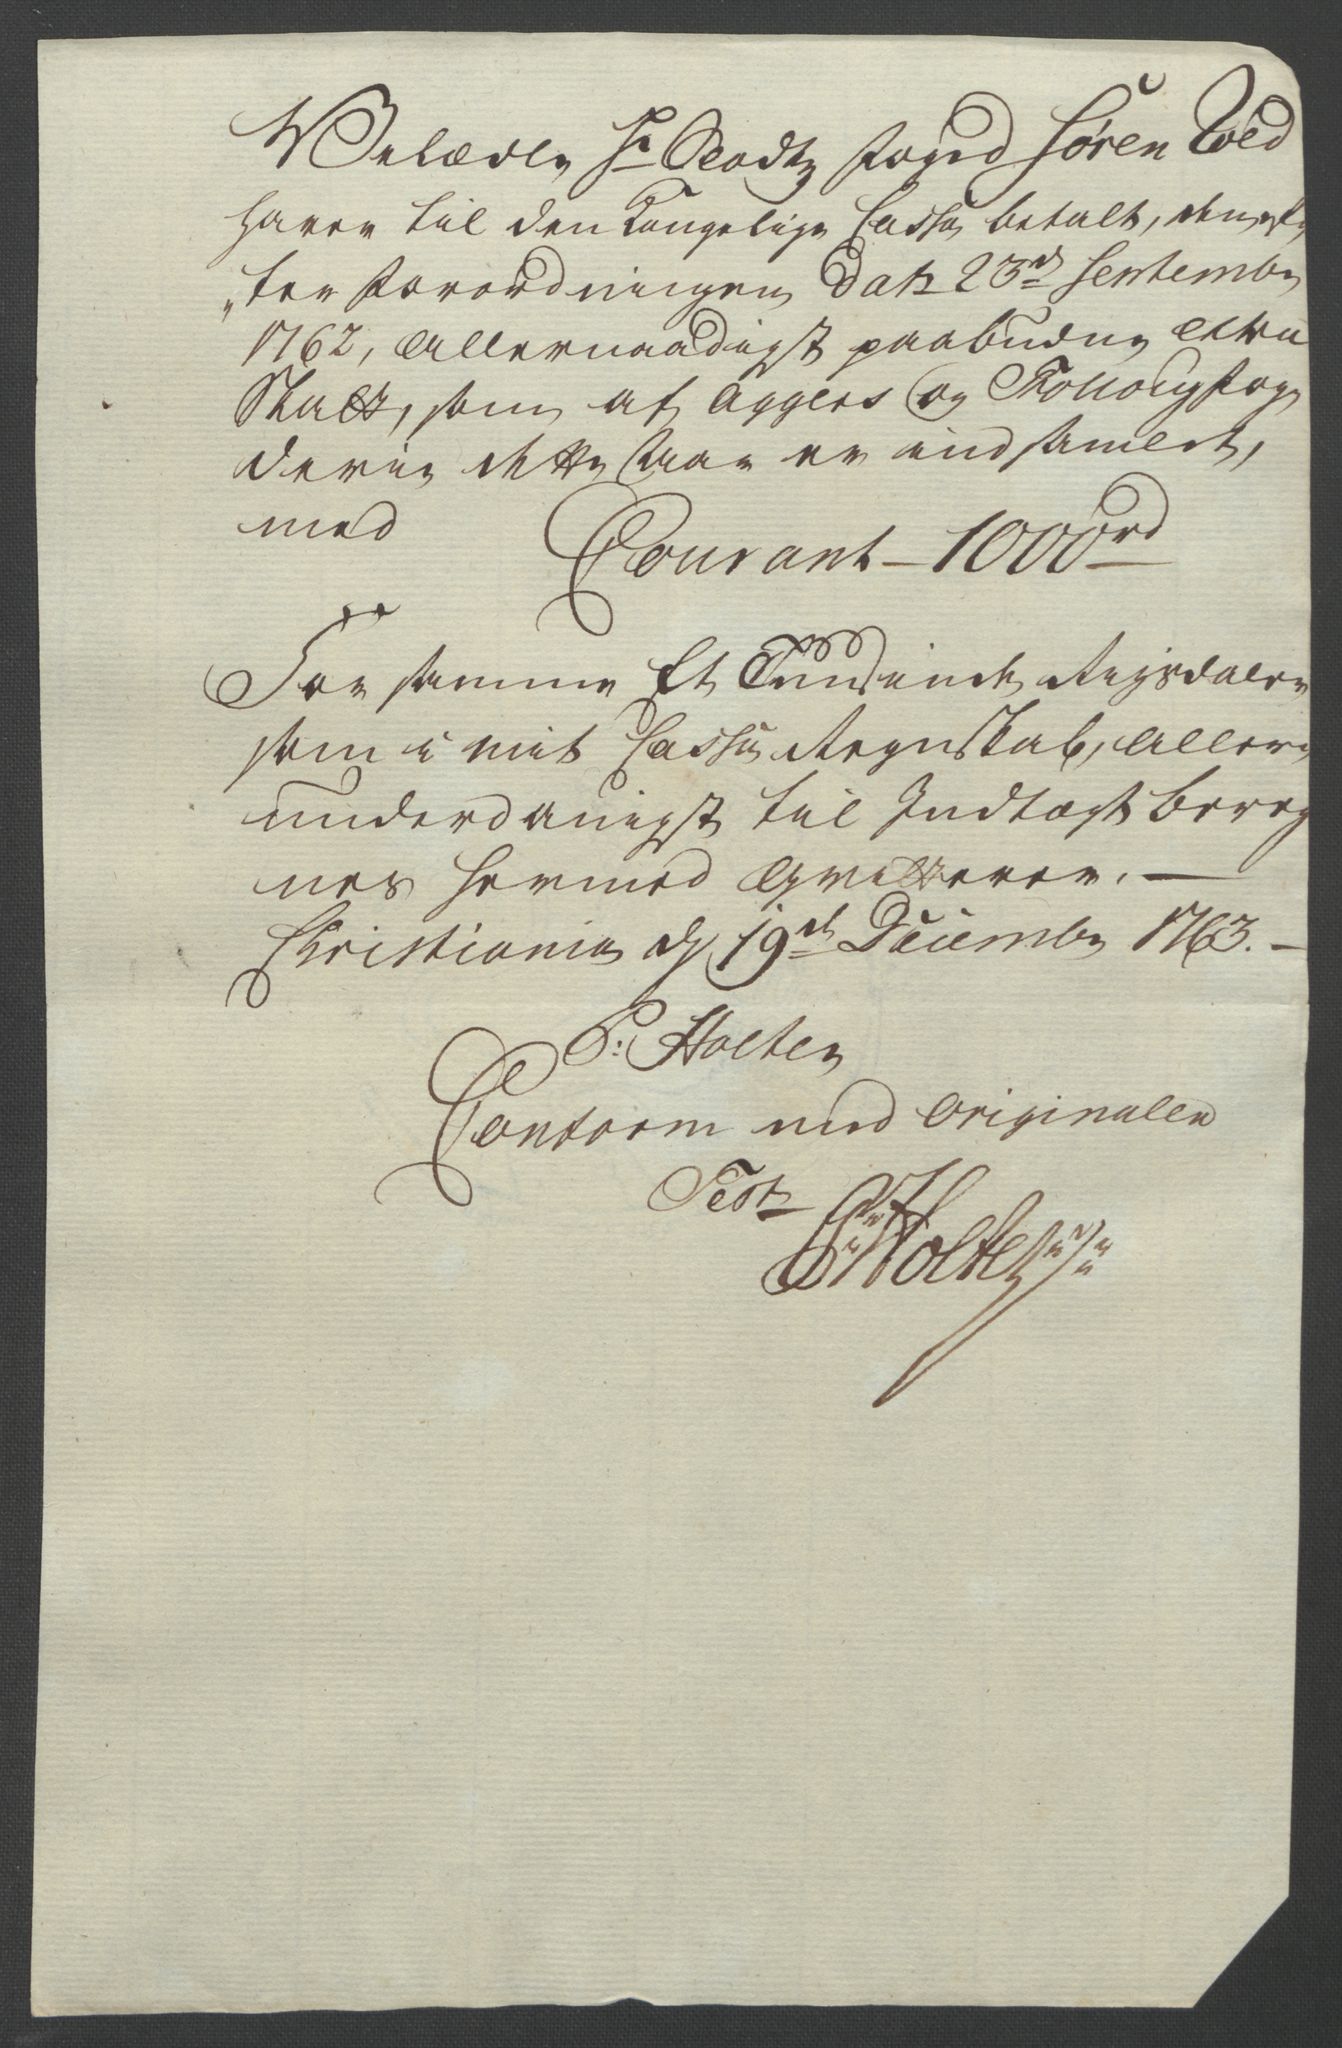 Velædle Hr Raadtz Foged Sören Wed
haver til den Kongelige Cassa betalt, den ef
„ter Forordningen Dat: 23de Septembr
1762, Allernaadigst paabudne Extra
Skatt, som af Aggers og Folloug Fog
derie dette Aar er indsamlet,
med Courant – 1000 rd
For samme Et Tuusinde Rigsdaler
som i mit Cassa Regnskab, Aller
underdanigst til Indtægt bereg
nes hermed qvitterer. —
Christiania d 19de Decembr 1763. –
P: Holten
Conform med Originalen
Test:
P: Holte